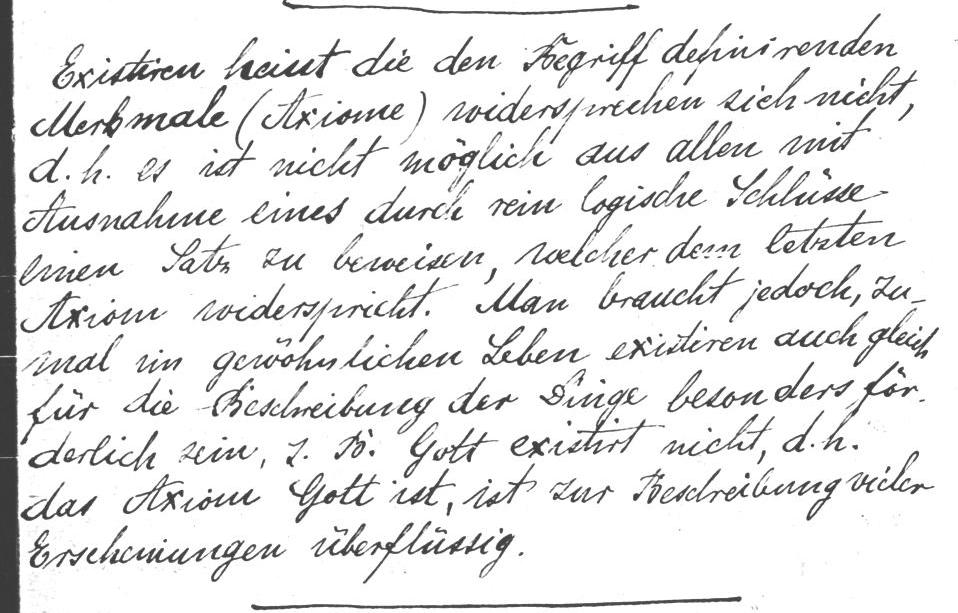 Existiren heisst die den Begriff definirenden
Merkmale (Axiome) widersprechen sich nicht,
d.h. es ist nicht möglich aus allen mit
Ausnahme eines durch rein logische Schlüsse
einen Satz zu beweisen, welcher dem letzten
Axiom widerspricht. Man braucht jedoch, zu-
mal im gewöhnlichen Leben existiren auch gleich
für die Beschreibung der Dinge besonders för-
derlich sein, z. B. Gott existirt nicht, d.h.
das Axiom Gott ist, ist zur Beschreibung vieler
Erscheinungen überflüssig.